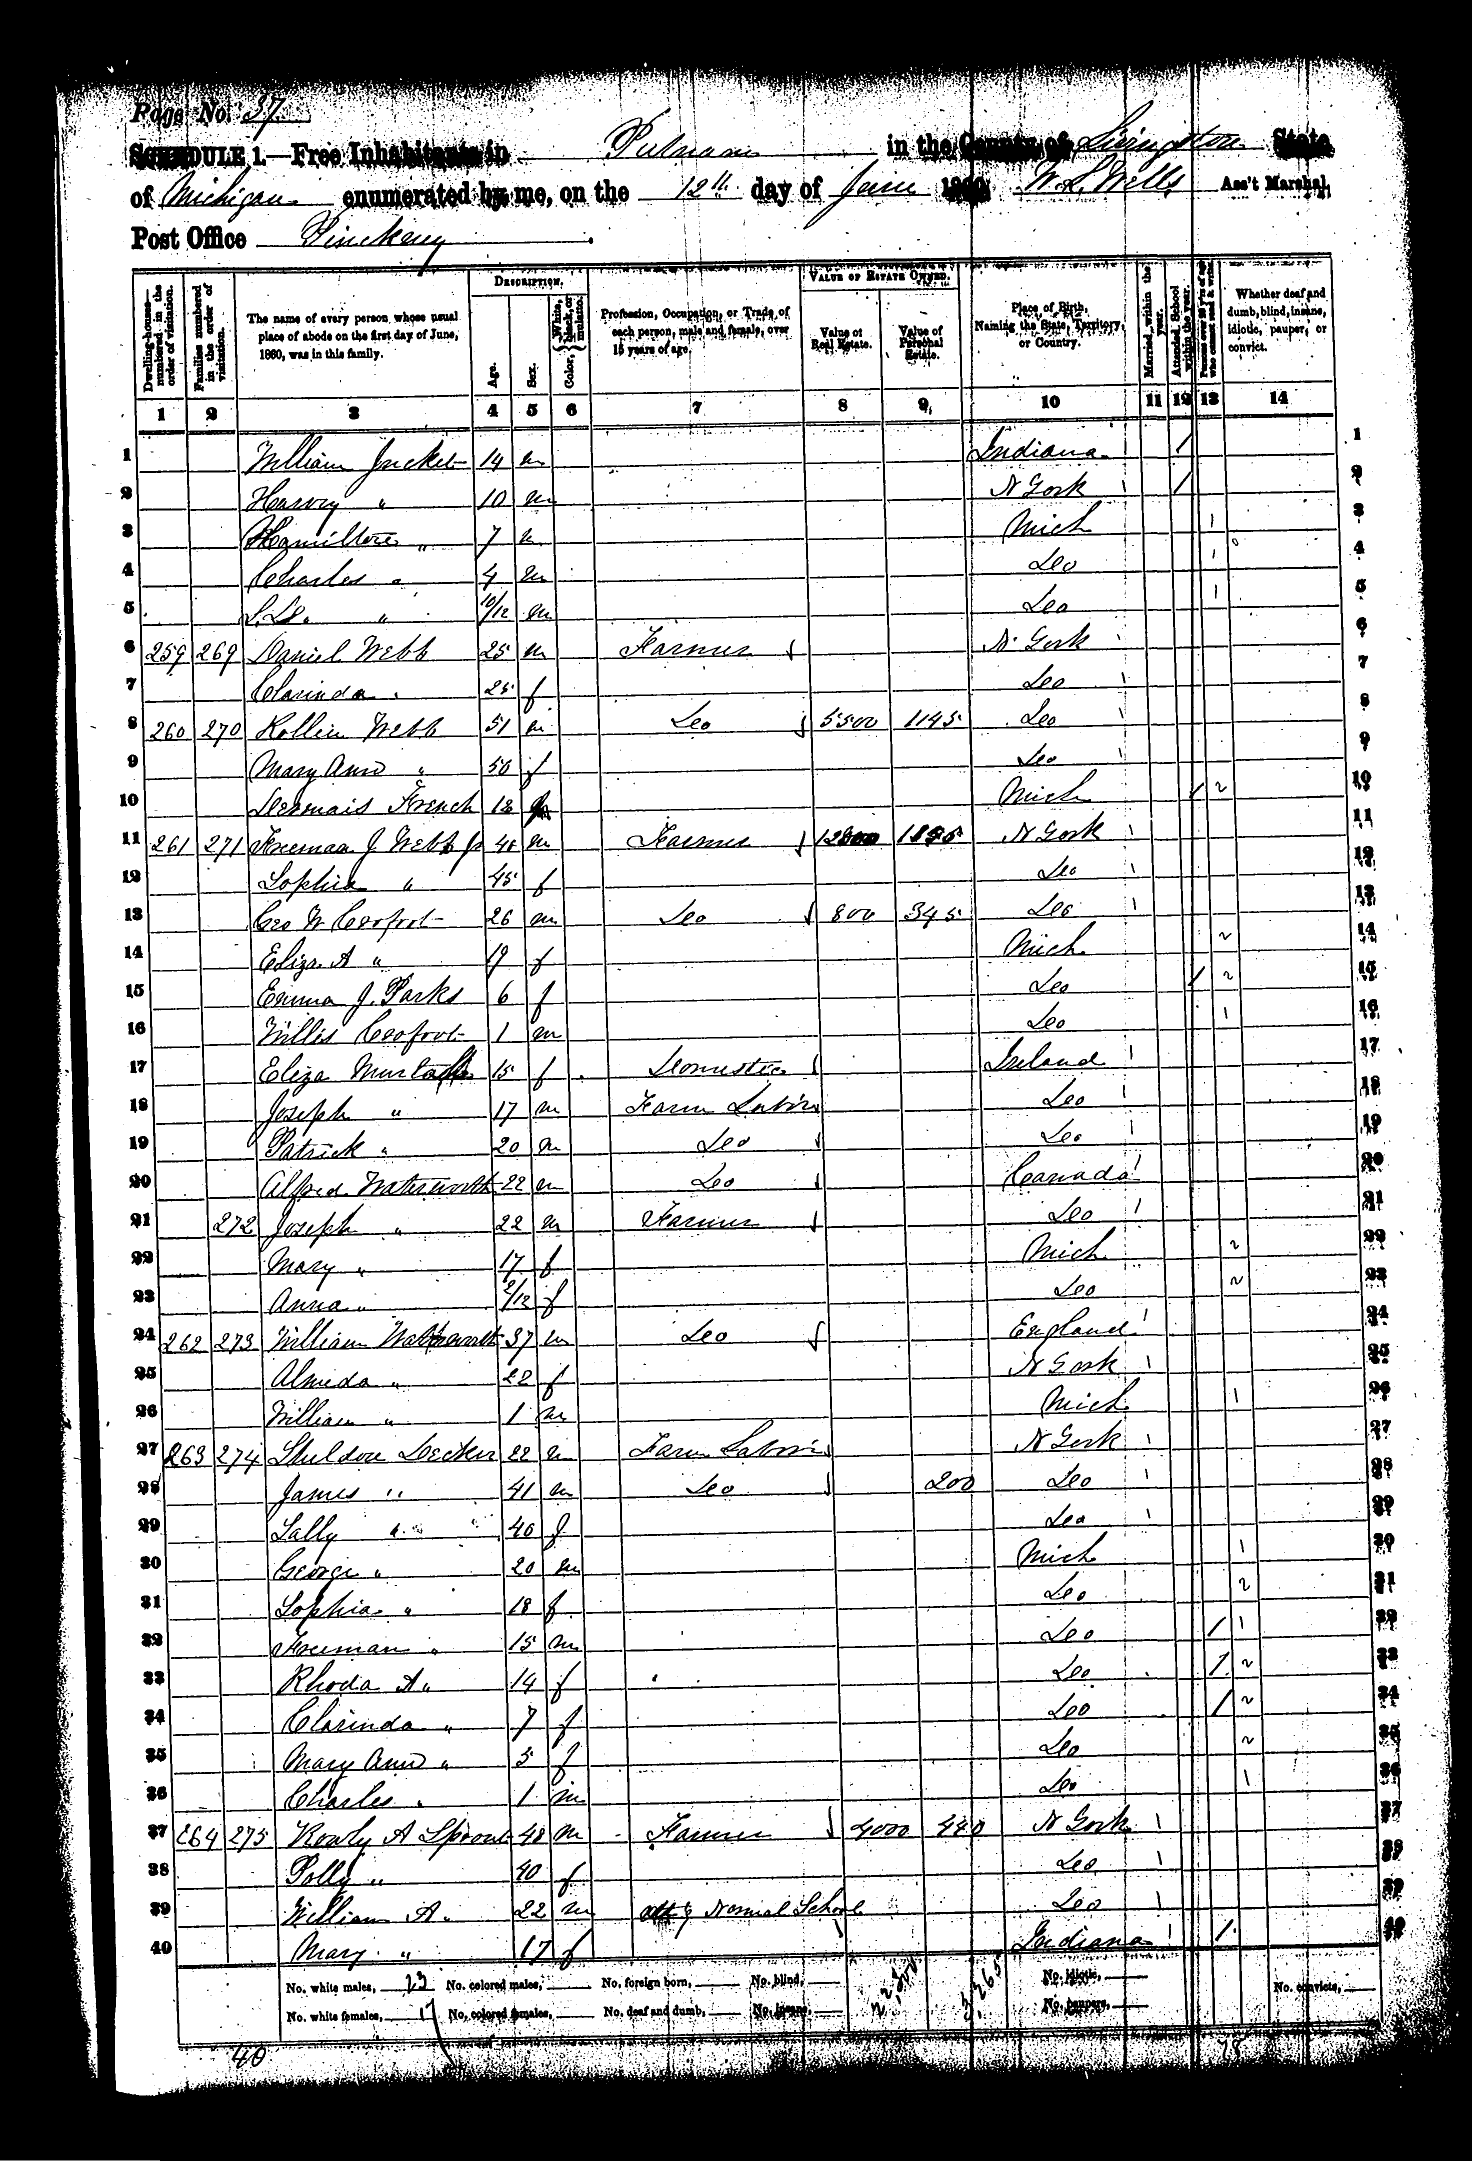 Page No. 37
SCHEDULE 1.—Free Inhabitants in Putnam in the County of Livingston State
of Michigan enumerated by me, on the 12th day of June 1860. W. L. Wells Ass't Marshal.
Post Office Pinckney
Dwelling-houses—numbered in the order of visitation.
Families numbered in the order of visitation.
The name of every person whose usual place of abode on the first day of June, 1860, was in this family.
DESCRIPTION.
Age.
Sex.
Color, White, black, or mulatto.
Profession, Occupation, or Trade of each person, male and female, over 15 years of age.
VALUE OF ESTATE OWNED.
Value of Real Estate.
Value of Personal Estate.
Place of Birth, Naming the State, Territory, or Country.
Married within the year.
Attended School within the year.
Persons over 20 y'rs of age who cannot read & write.
Whether deaf and dumb, blind, insane, idiotic, pauper, or convict.
1 2 3 4 5 6 7 8 9 10 11 12 13 14
1 William 14 m Indiana 1 1
2 Harvey " 10 m N York 1 1 2
3 Hamilton " 7 m Mich 1 3
4 Charles " 4 m Do 1 4
5 " 10/12 m Do 1 5
6 259 269 Daniel Webb 25 m Farmer N. York 1 6
7 Clarinda " 25 f Do 1 7
8 260 270 Rollin Webb 51 m Do 5500 1145 Do 1 8
9 Mary Ann " 50 f Do 1 9
10 French 12 Mich 1 2 10
11 261 271 Freeman J Webb Jr m Farmer N York 1 11
12 Sophia " 45 f Do 1 12
13 Geo W Crofoot 26 m Do 800 345 Do 1 13
14 Eliza A " 19 f Mich 2 14
15 Emma J. Parks 6 f Do 1 2 15
16 Willis Crofoot 1 m Do 1 16
17 Eliza 15 f Domestic Ireland 1 17
18 Joseph " 17 m Farm Labor Do 1 18
19 Patrick " 20 m Do Do 1 19
20 Alfred Watsworth 22 m Do Canada 1 20
21 272 Joseph " 22 m Farmer Do 1 21
22 Mary " 17 f Mich 2 22
23 Anna " f Do 2 23
24 262 273 William 37 m Do England 1 24
25 Almeda " 22 f N York 1 25
26 William " 1 m Mich 1 26
27 263 274 Sheldon Decker 22 m Farm Labor N York 1 27
28 James " 41 m Do 200 Do 1 28
29 Sally " 40 f Do 1 29
30 George " 20 m Mich 1 30
31 Sophia " 18 f Do 2 31
32 Freeman " 15 m Do 1 1 32
33 Rhoda A " 14 f Do 1 2 33
34 Clarinda " 7 f Do 1 2 34
35 Mary Ann " 5 f Do 2 35
36 Charles " 1 m Do 1 36
37 264 275 A Sprout 48 m Farmer 4000 440 N York 1 37
38 Polly " 40 f Do 1 38
39 William A " 22 m Normal School Do 1 39
40 Mary " 17 f Indiana 1 1 40
No. white males, 23 No. colored males, No. foreign born, No. blind, No. idiotic, No. convicts,
No. white females, 17 No. colored females, No. deaf and dumb, No. insane, No. paupers,
40